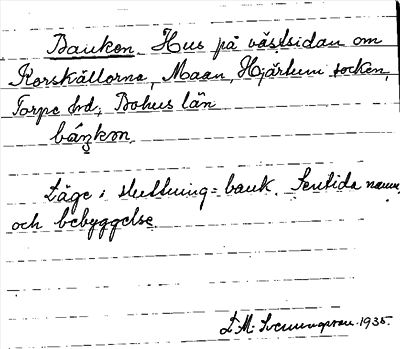 Banken. Hus på västsidan om
Korskällorna, Maan, Hjärtum socken,
Torpe hd, Bohus län
báŋkɔn.
Läge i sluttning = bank. Sentida namn
och bebyggelse.
L. M. Svenungsson 1935.